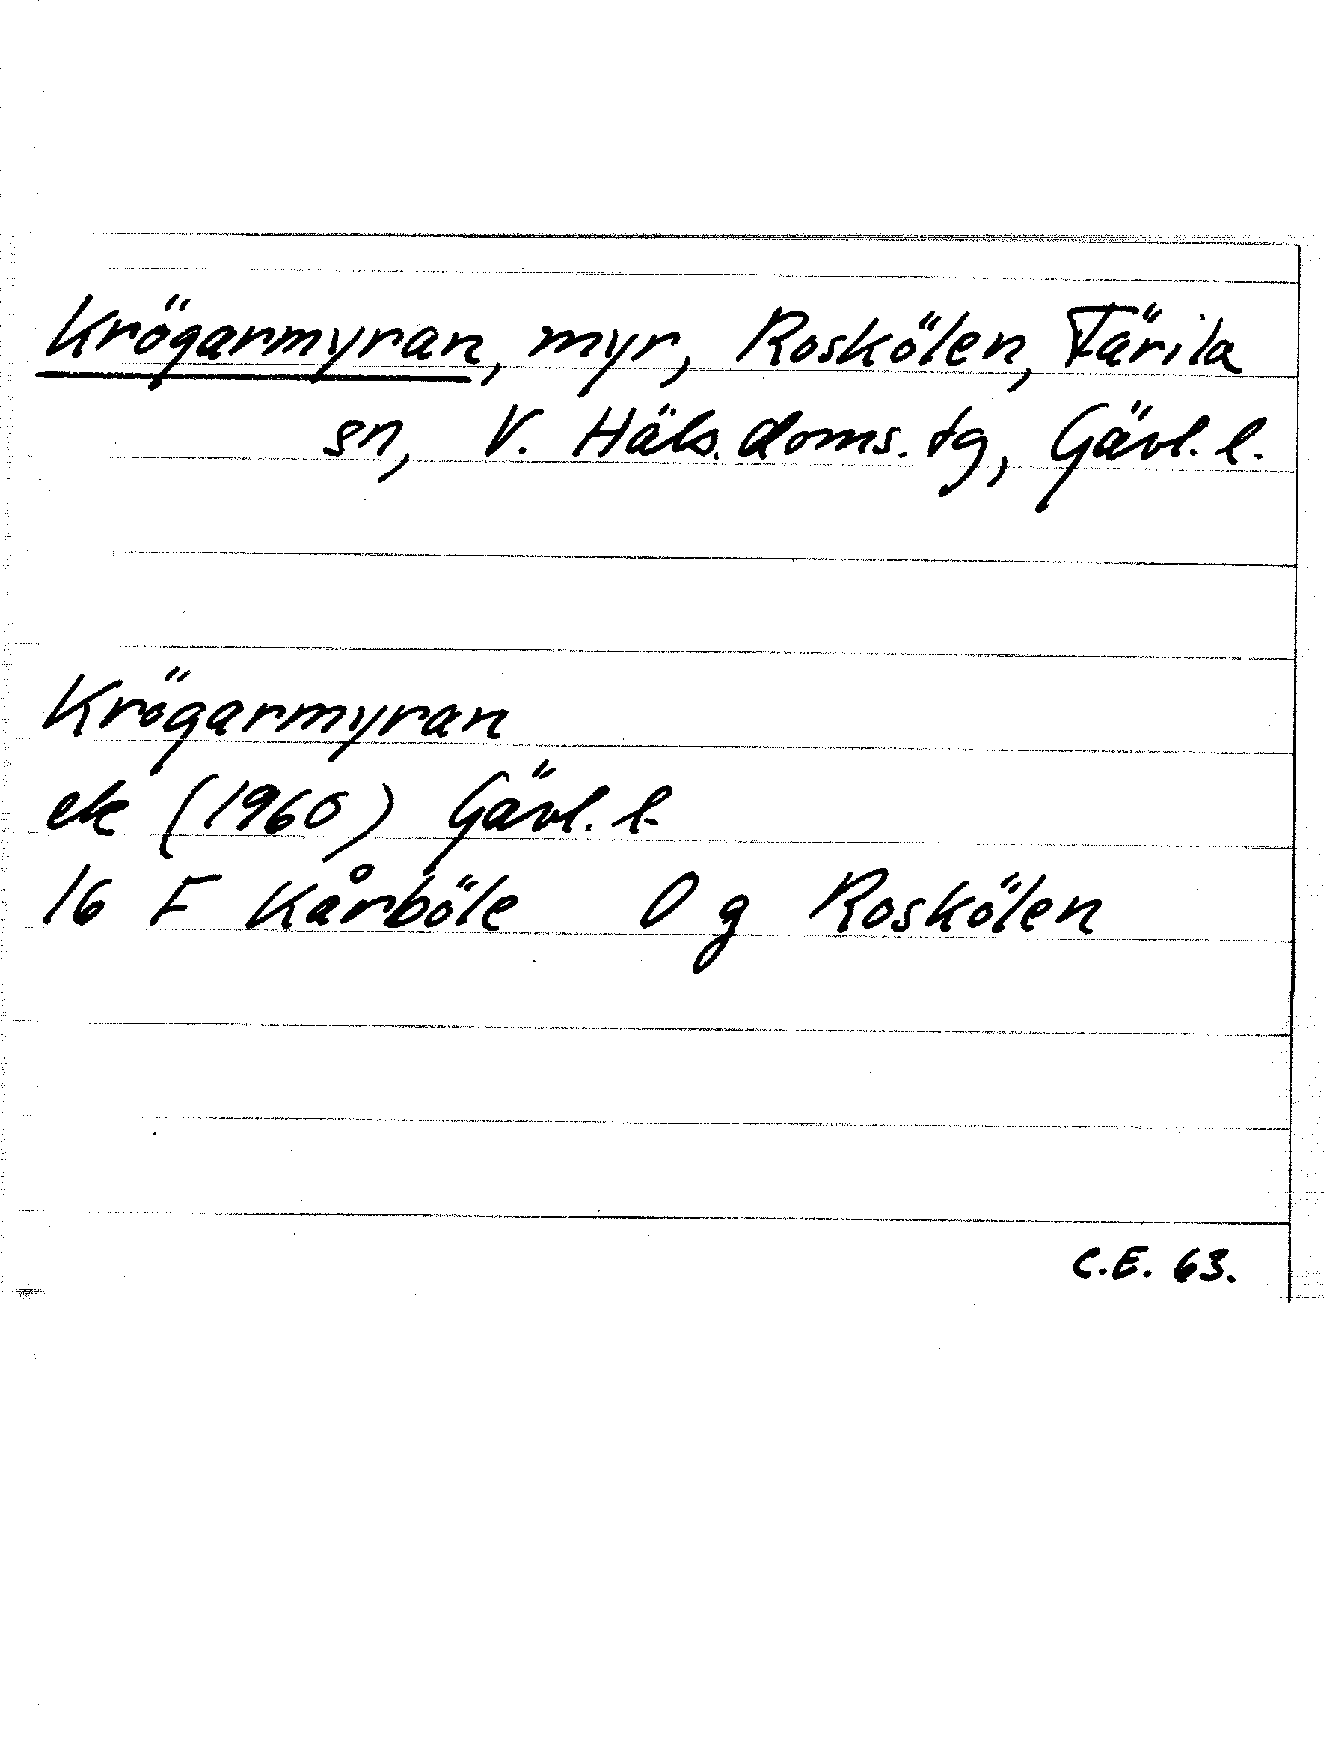 Krögarmyran, myr, Roskölen, Färila
sn, V. Häls. doms. tg, Gävl. l.
Krögarmyran
ek (1960) Gävl. l.
16 F Kårböle 0 g Roskölen
C.E. 63.